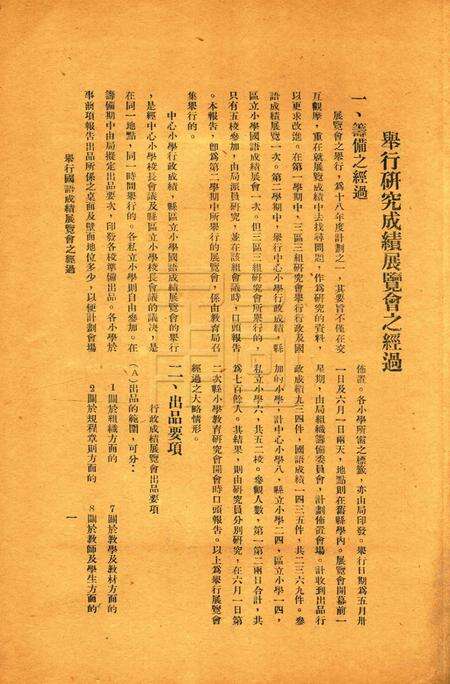 舉行研究成績展覽會之經過
一、籌備之經過
展覽會之舉行，爲十八年度計劃之一，其要旨不僅在交
互觀摩，重在就展覽成績中去找尋問題，作爲研究的資料，
以更求改進。在第一學期中，三區三組研究會舉行行政及國
語成績展覽一次。第二學期中，舉行中心小學行政成績，縣
區立小學國語成績展會一次。但三區三組研究會所舉行的，
只有五校參加，由局派員研究，並在該組會議時，口頭報告
。本報告，卽爲第二學期中所舉行的展覽會，係由教育局召
集舉行的。
中心小學行政成績，縣區立小學國語成績展覽會的舉行
，是經中心小學校長會議及縣區立小學校長會議的議決，是
在同一地點，同一時間舉行的。各私立小學則自由參加。在
籌備期中由局擬定出品要次，印發各校準備出品。各小學於
事前項報告出品所係之桌面及壁面地位多少，以便計劃會場
佈置。各小學所需之標籤，亦由局印發。舉行日期爲五月卅
一日及六月一日兩天，地點則在舊縣學內。展覽會開幕前一
星期，由局組織籌備委員會，計劃佈置會場。計收到出品行
政成績九三四件，國語成績一四三五件，共二三六九件。參
加的小學，計中心小學八，縣立小學二四，區立小學一四，
私立小學六，共五二校。參觀人數，第一第二兩日合計，共
爲七百餘人。其結果，則由研究員分別研究，在六月一日第
二次縣小學教育研究會開會時口頭報告。以上爲舉行展覽會
經過之大略情形。
二、出品要項
行政成績展覽會出品要項
(A)出品的範圍，可分：
1 關於組織方面的
2 關於規程章則方面的
7 關於教學及教材方面的
8 關於教師及學生方面的
舉行國語成績展覽會之經過
一